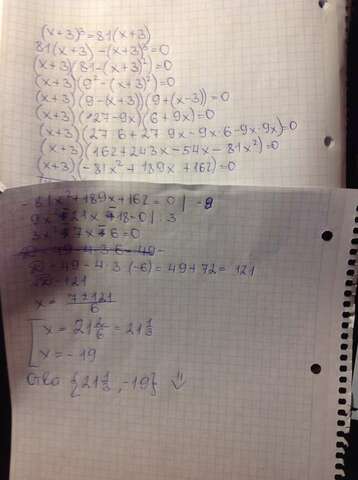 (x+3)³=81(x+3)
81(x+3)-(x+3)³=0
(x+3)(81-(x+3)²)=0
(x+3)(9²-(x+3)²)=0
(x+3)(9-(x+3))(9+(x-3))=0
(x+3)(27-9x)(6+9x)=0
(x+3)(27·6+27·9x-9x·6-9x·9x)=0
(x+3)(162+243x-54x-81x²)=0
(x+3)(-81x²+189x+162)=0
-81x²+189x+162=0|:-9
9x²-21x-18=0|:3
3x²-7x-6=0
D=49-4·3·(-6)=49+72=121
D=121
x=
6
x=21 2/6=21 1/3
x=-19
{21 1/3, -19}